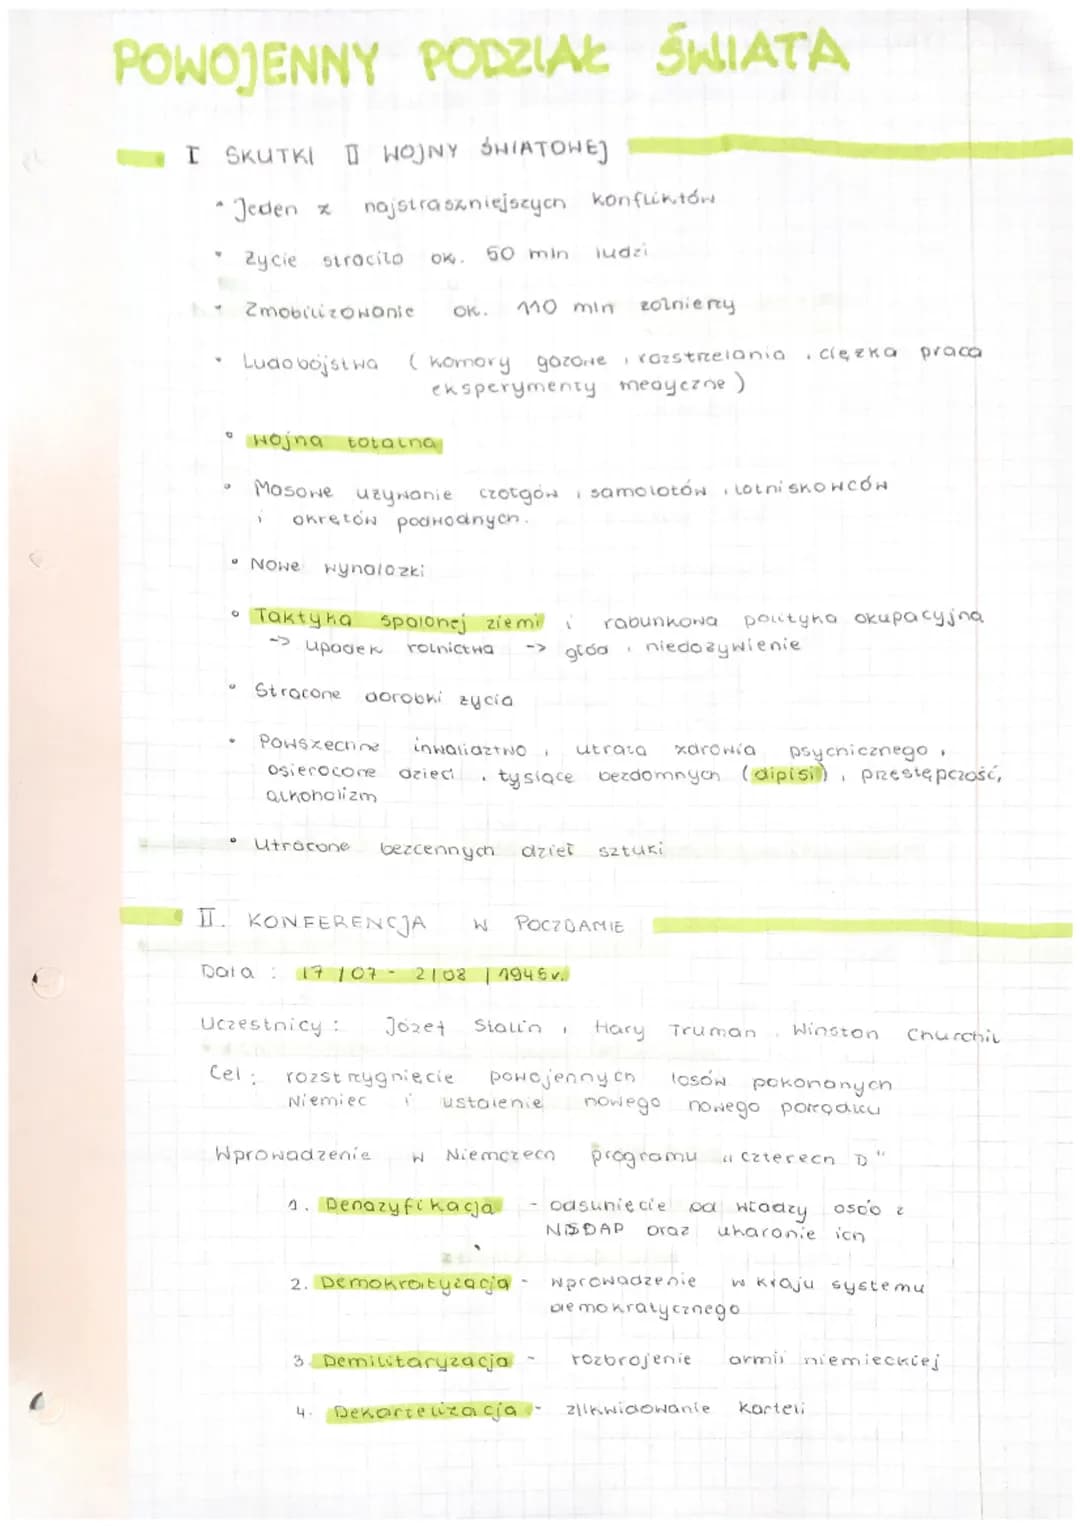 POWOJENNY PODZIAŁ ŚWIATA
I SKUTKI II WOJNY ŚWIATOWEJ
• Jeden z najstraszniejszych konfliktów
• Życie straciło ok. 50 mln ludzi
• Zmobilizowanie ok. 110 mln żołnierzy
• Ludobójstwa ( komory gazowe , rozstrzelania , ciężka praca
eksperymenty medyczne )
• Wojna totalna
• Masowe używanie czołgów , samolotów , lotniskowców
i okrętów podwodnych.
• Nowe wynalazki
• Taktyka spalonej ziemi i rabunkowa polityka okupacyjna
-> upadek rolnictwa -> głód , niedożywienie
• Stracone dorobki życia
• Powszechne inwalidztwo , utrata zdrowia psychicznego ,
osierocone dzieci , tysiące bezdomnych (dipisi) , przestępczość,
alkoholizm
• Utracone bezcennych dzieł sztuki
II. KONFERENCJA W POCZDAMIE
Data : 17 / 07 - 2 / 08 | 1945 r.
Uczestnicy : Józef Stalin , Hary Truman , Winston Churchil
Cel : rozstrzygnięcie powojennych losów pokonanych
Niemiec i ustalenie nowego nowego porządku
Wprowadzenie w Niemczech programu „ czterech D "
1. Denazyfikacja - odsunięcie od władzy osób z
NSDAP oraz ukaranie ich
2. Demokratyzacja - wprowadzenie w kraju systemu
demokratycznego
3. Demilitaryzacja - rozbrojenie armii niemieckiej
4. Dekartelizacja - zlikwidowanie karteli